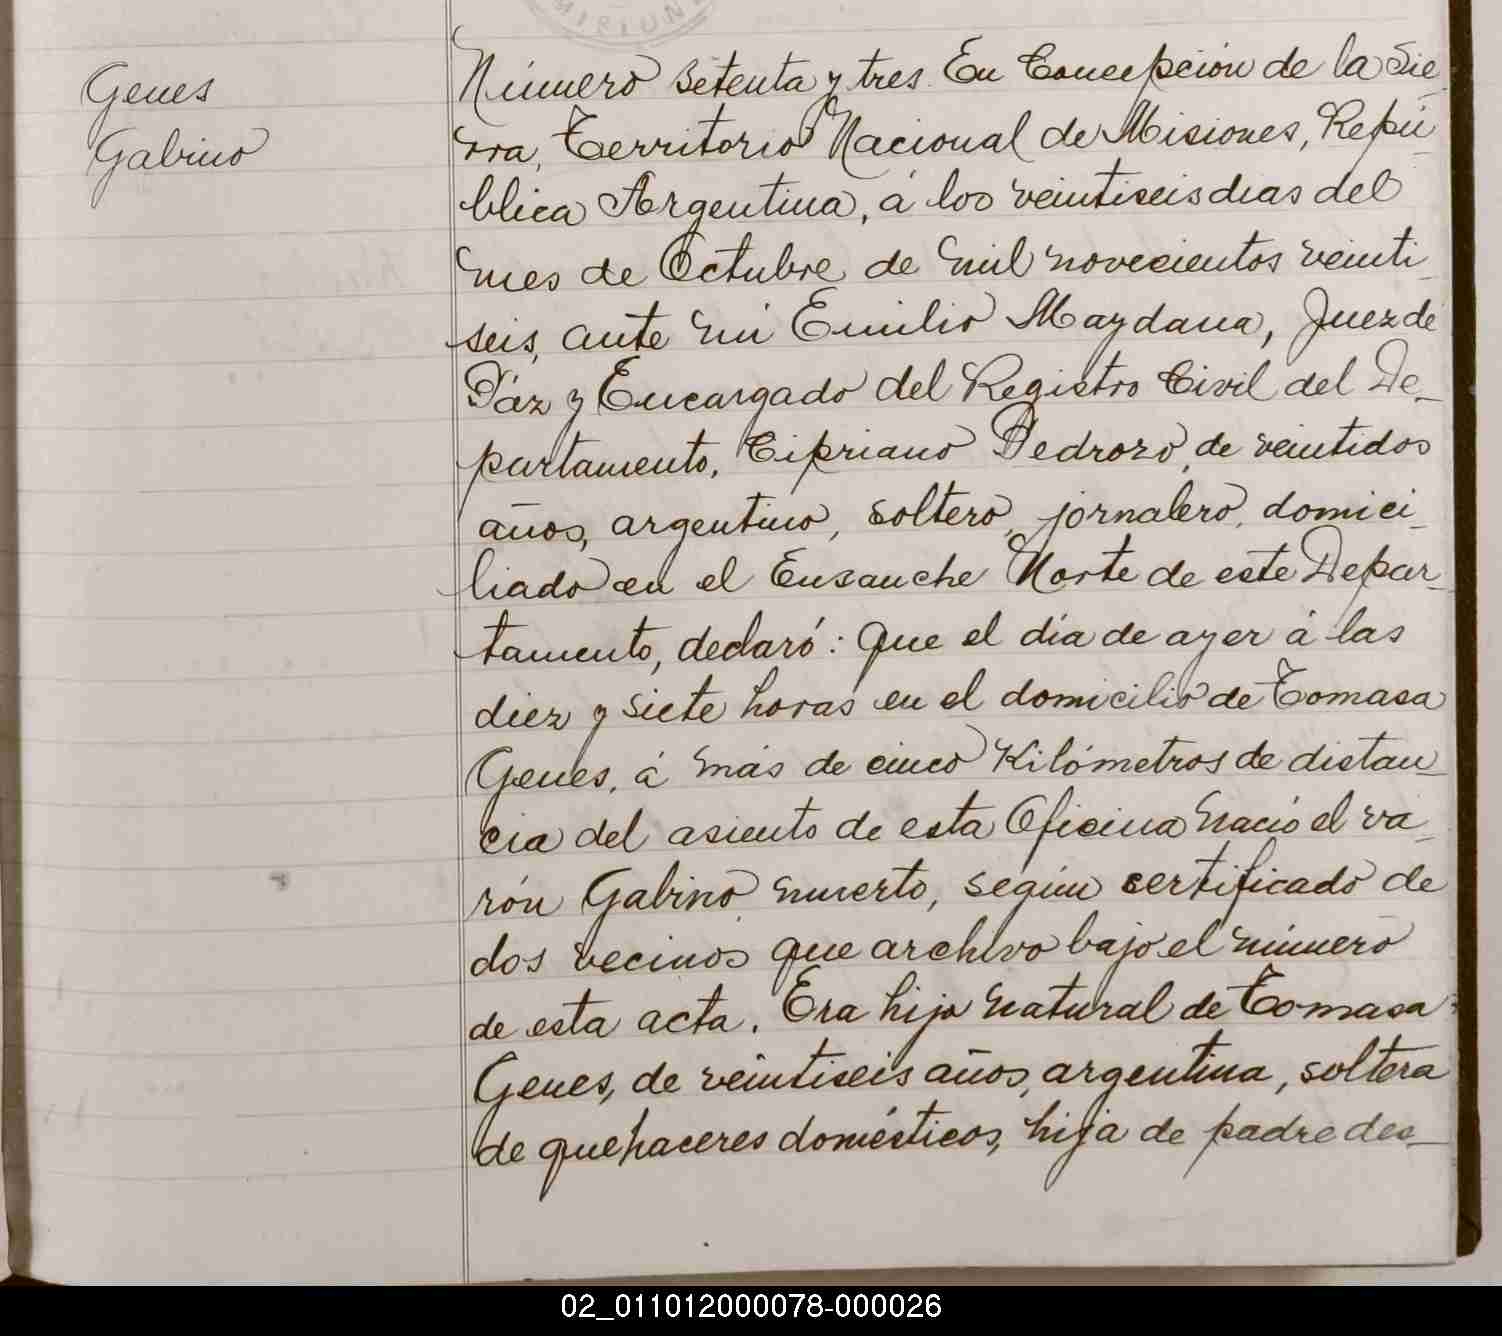 MISIONES
Genes
Gabino
Número setenta y tres. En Concepción de la Sie-
rra, Territorio Nacional de Misiones, Repú-
blica Argentina, á los veintiseis dias del
mes de Octubre de mil novecientos veinti-
seis, ante mi Emilio Maydana, Juez de
Páz y Encargado del Registro Civil del De-
partamento, Cipriano Pedrozo, de veintidos
años, argentino, soltero, jornalero, domici-
liado en el Ensanche Norte de este Depar-
tamento, declaró: Que el día de ayer á las
diez y siete horas en el domicilio de Tomasa
Genes, á más de cinco Kilómetros de distan-
cia del asiento de esta Oficina nació el va-
rón Gabino muerto, según certificado de
dos vecinos que archivo bajo el número
de esta acta. Era hijo natural de Tomasa
Genes, de veintiseis años, argentina, soltera
de quehaceres domésticos, hija de padre des-
02_011012000078-000026